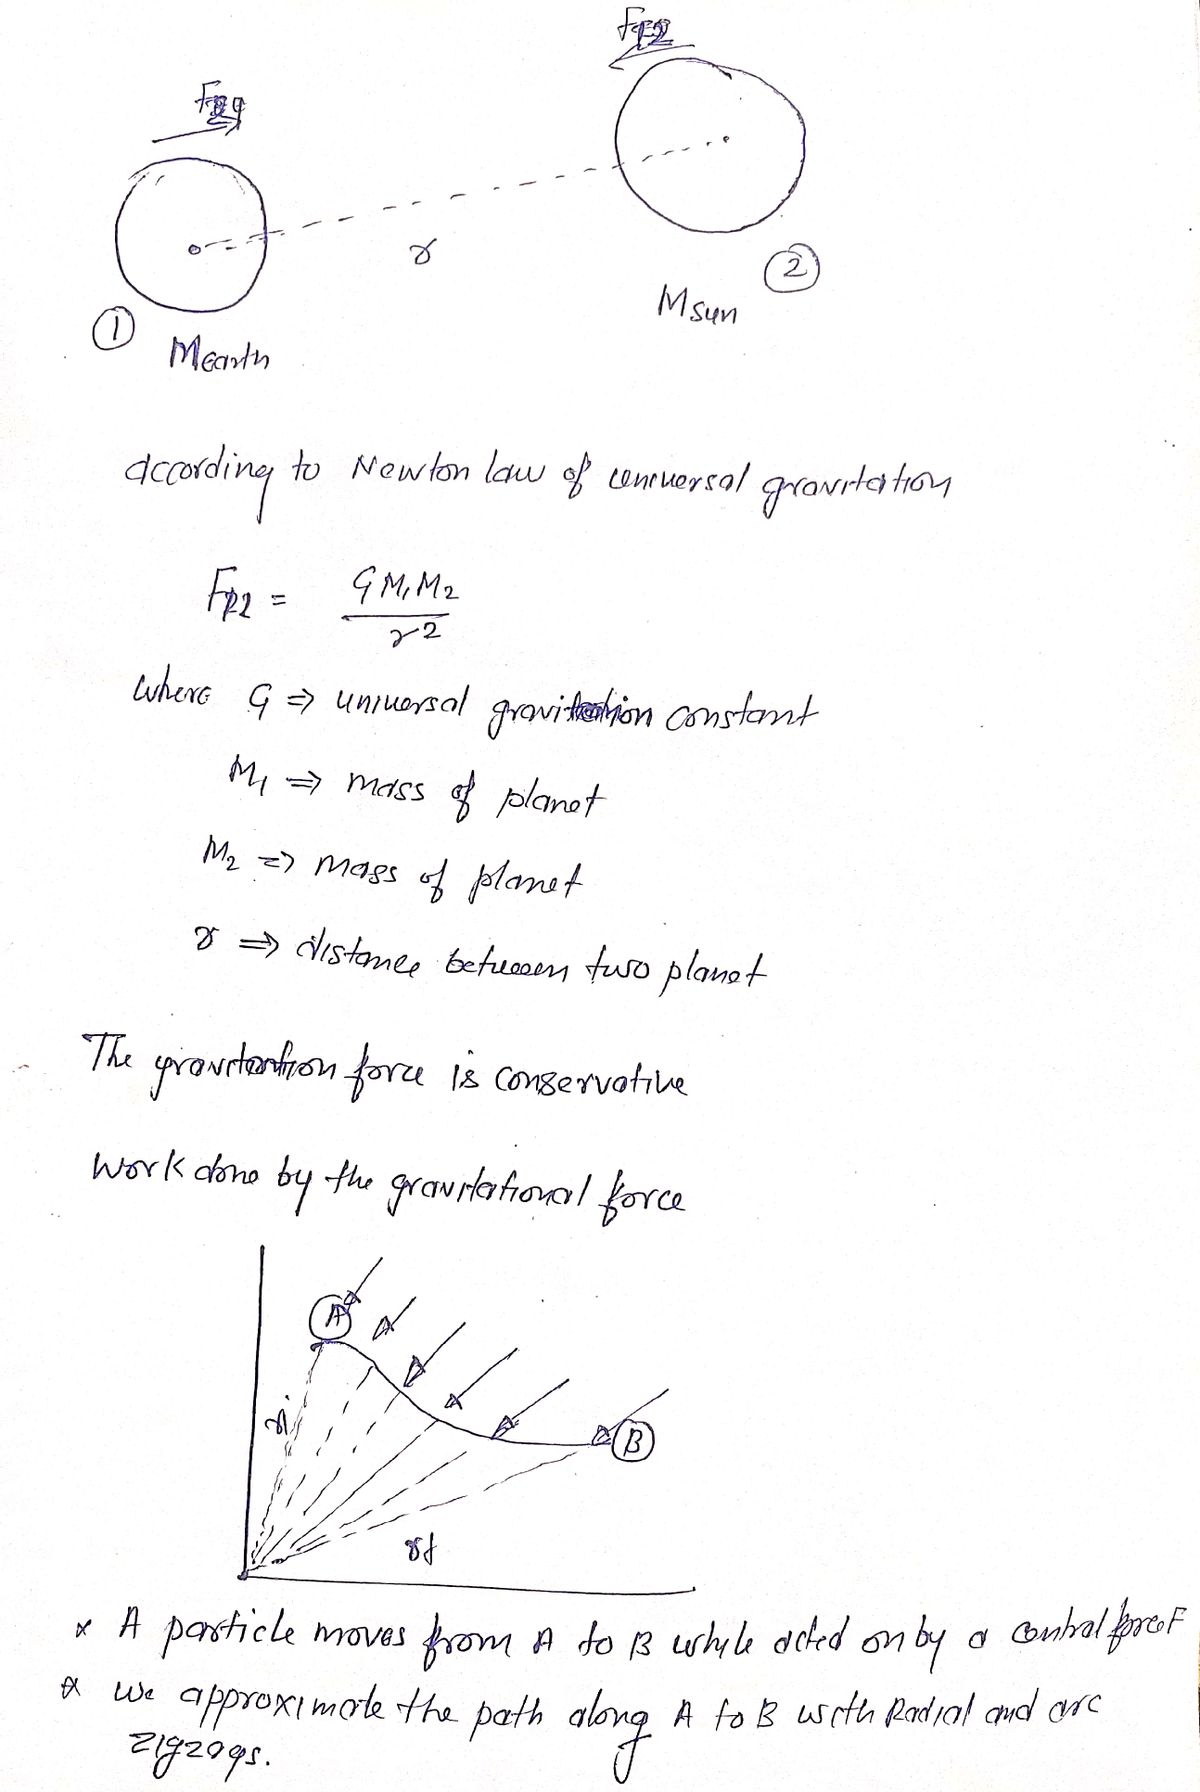 F12
F21
r
②
Msun
①
MEarth
according to Newton law of universal gravitation
F12 = GM1M2
r2
where G ⇒ universal gravitation constant
M1 ⇒ mass of planet
M2 ⇒ mass of planet
r ⇒ distance between two planet
The gravitation force is conservative
Work done by the gravitational force
A
B
ri
rf
* A particle moves from A to B whyle acted on by a central force F
* We approximate the path along A to B with Radial and arc
zigzags.